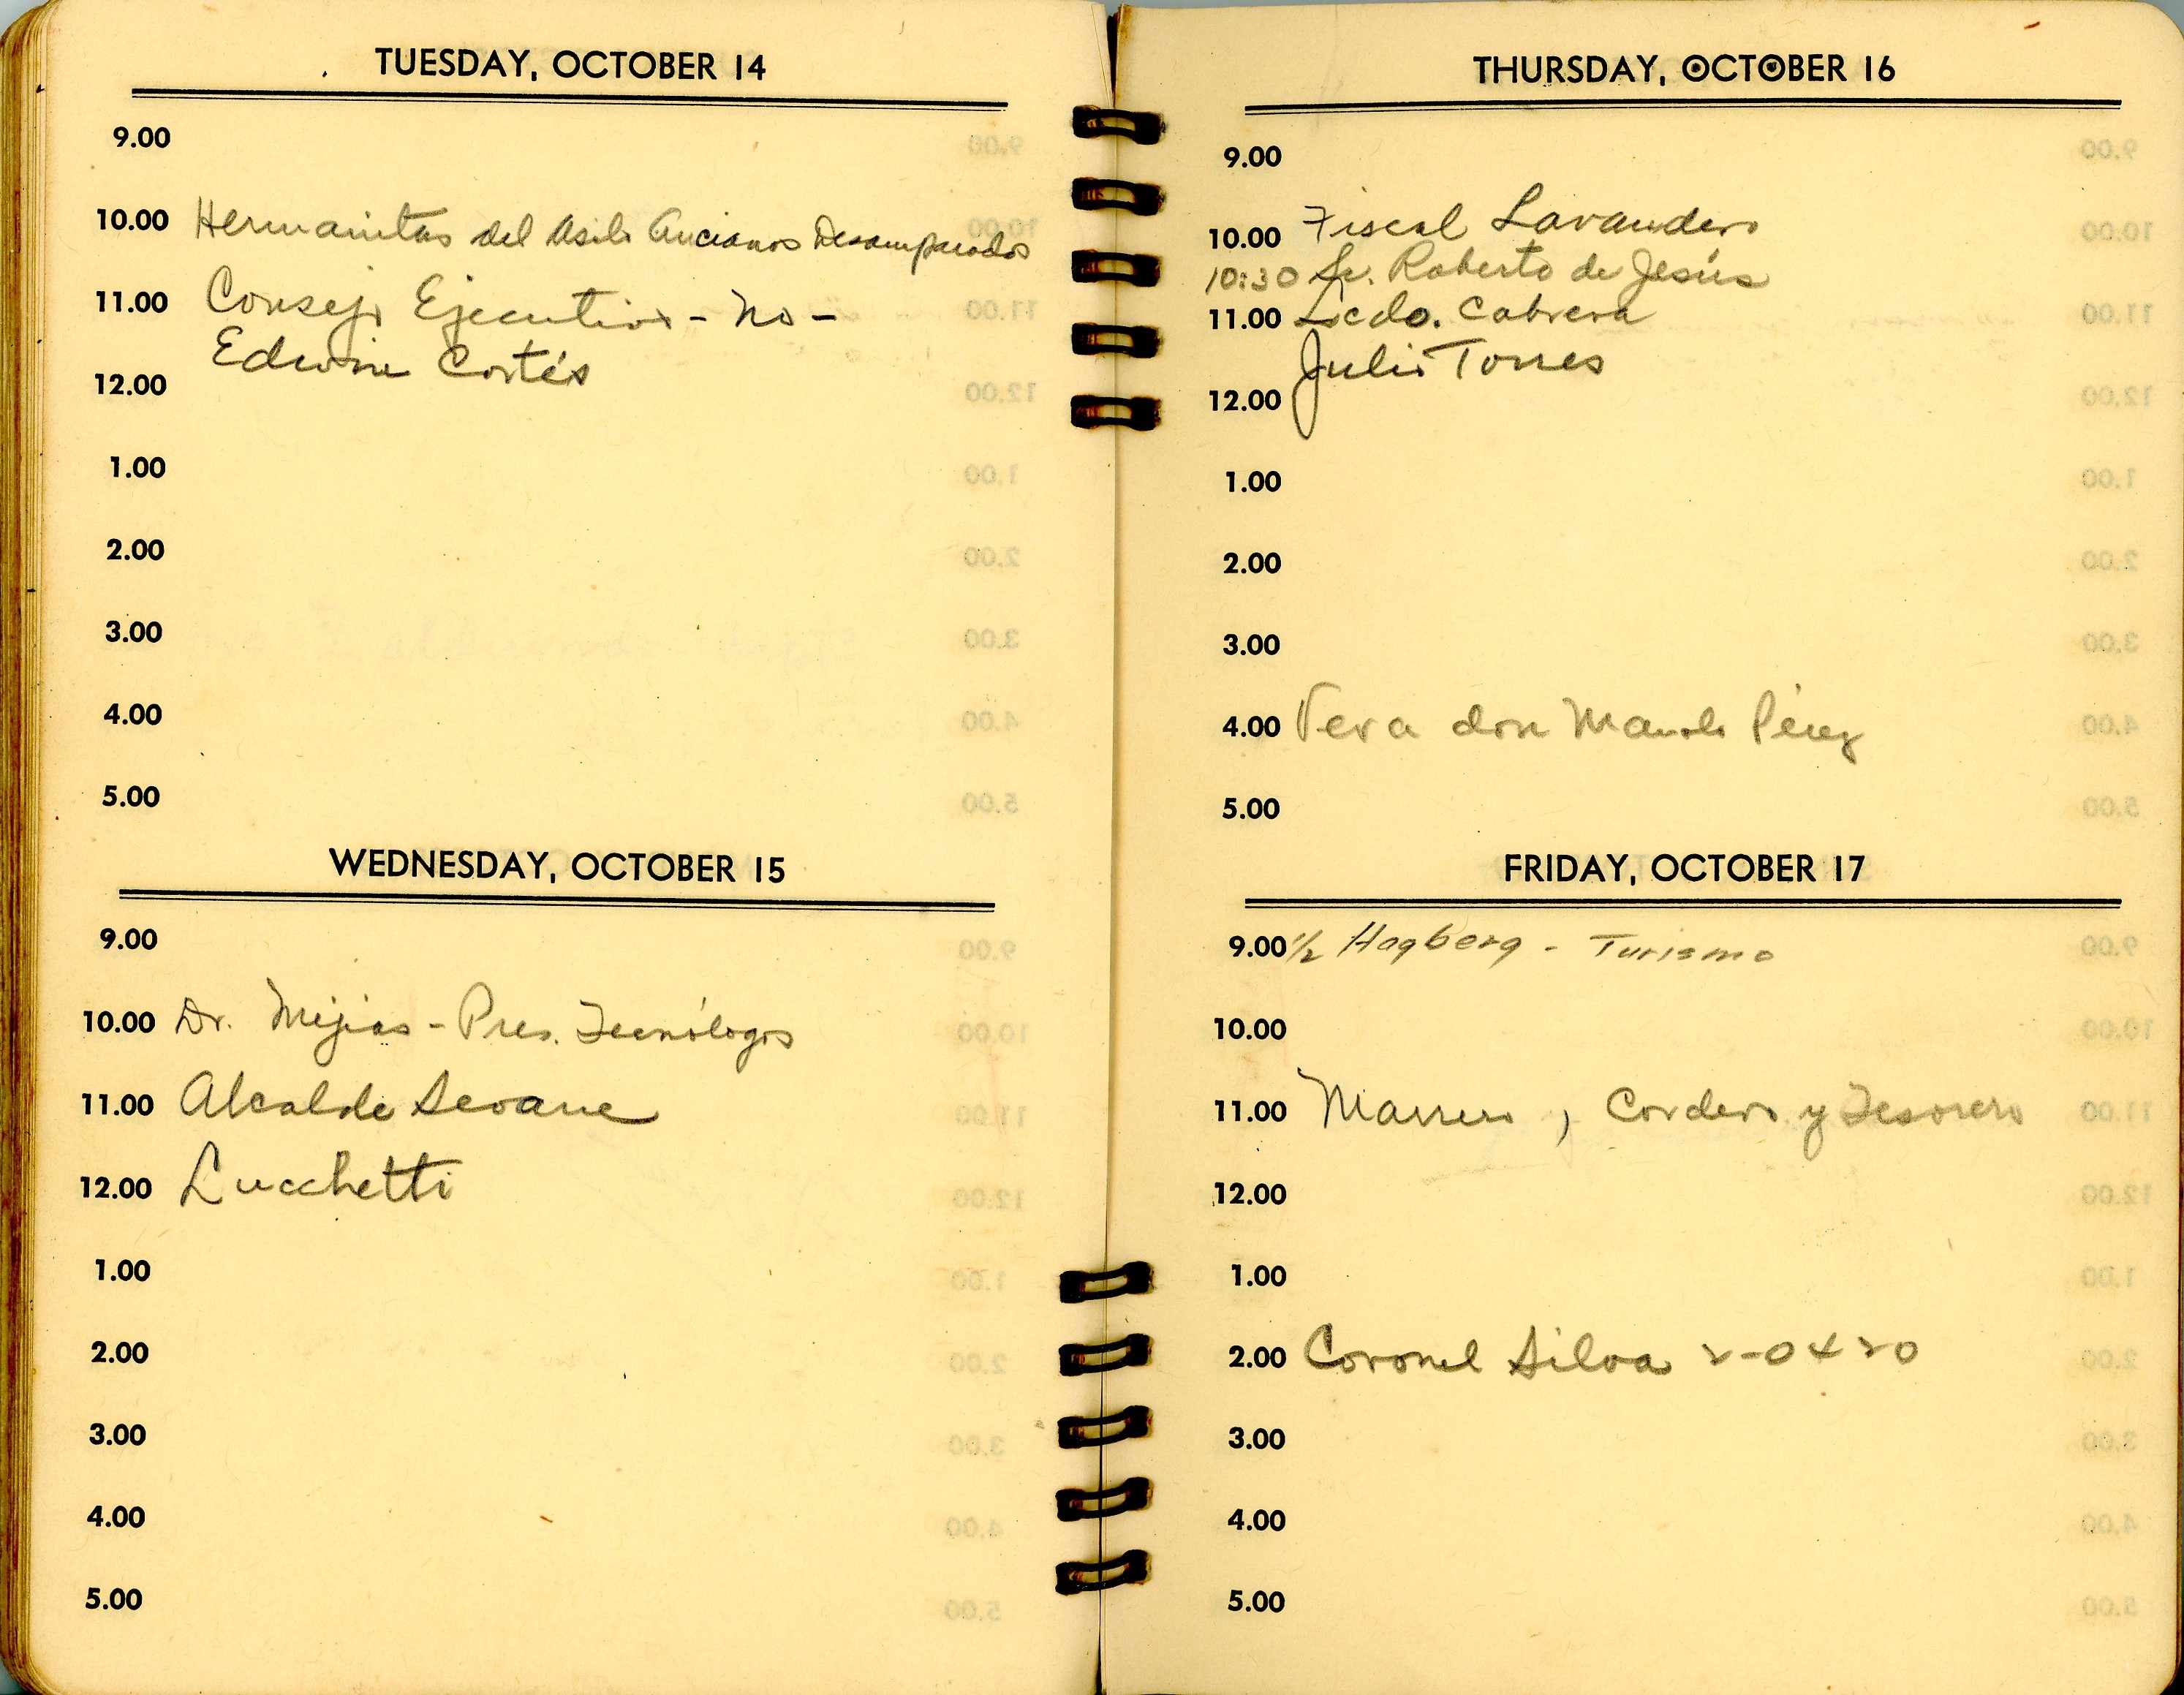 TUESDAY, OCTOBER 14
9.00
10.00 Hermanitas del Asilo Ancianos Desamparados
11.00 Consejo Ejecutivo - No -
Edwin Cortés
12.00
1.00
2.00
3.00
4.00
5.00
WEDNESDAY, OCTOBER 15
9.00
10.00 Dr. Mejias - Pres. Tecnólogos
11.00 Alcalde Seoane
12.00 Lucchetti
1.00
2.00
3.00
4.00
5.00
THURSDAY, OCTOBER 16
9.00
10.00 Fiscal Lavandero
10:30 Sr. Roberto de Jesús
11.00 Lcdo. Cabrera
Julio Torres
12.00
1.00
2.00
3.00
4.00 Ver a don Manolo Pérez
5.00
FRIDAY, OCTOBER 17
9.00 1/2 Hagberg - Turismo
10.00
11.00 Marrero, Cordero y Tesorero
12.00
1.00
2.00 Coronel Silva 2-0420
3.00
4.00
5.00